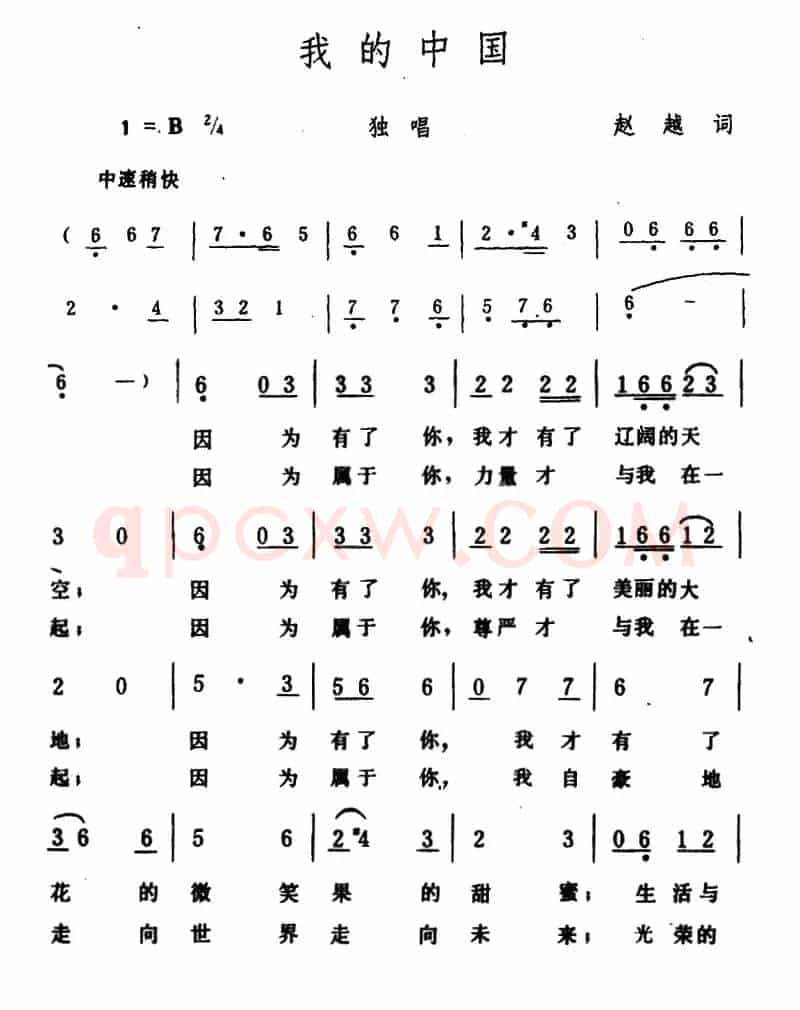 我的中国
1=B 2/4 独唱 赵越词
中速稍快
( 6 6 7 | 7·6 5 | 6 6 1 | 2·#4 3 | 0 6 6 6 |
2 · 4 | 3 2 1 | 7 7 6 | 5 7 6 | 6 - |
6 - ) | 6 0 3 | 3 3 3 | 2 2 2 2 | 1 6 6 2 3 |
因为有了你,我才有了辽阔的天
因为属于你,力量才与我在一
qpcxw.COM
3 0 | 6 0 3 | 3 3 3 | 2 2 2 2 | 1 6 6 1 2 |
空;因为有了你,我才有了美丽的大
起;因为属于你,尊严才与我在一
2 0 | 5 · 3 | 5 6 6 | 0 7 7 | 6 7 |
地;因为有了你,我才有了
起;因为属于你,我自豪地
3 6 6 | 5 6 | 2 #4 3 | 2 3 | 0 6 1 2 |
花的微笑果的甜蜜;生活与
走向世界走向未来;光荣的